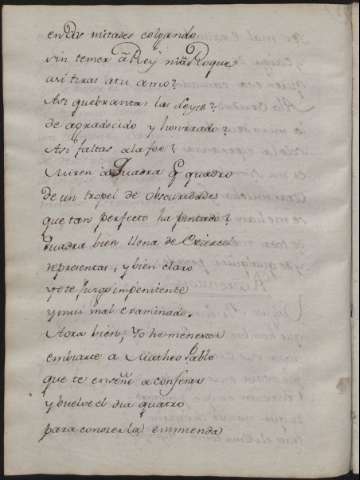 en dos mitades colgando
sin temer a Rey ni a Roque
asi tiras a tu amo?
Asi quebrantas las Leyes
de agradecido y honrrado?
Asi faltas a la fee?
Miren que Quadra o quadro
de un tropel de obscuridades
que tan perfecto ha pintado?
quadra bien llena de
representas, y bien claro
y este juego impenitente
y mui mal examinado.
Aora bien, Yo he menester
embiarte a Matheo Pablo
que te enseñe a confesar
y buelve el dia quatro
para conocer la enmienda